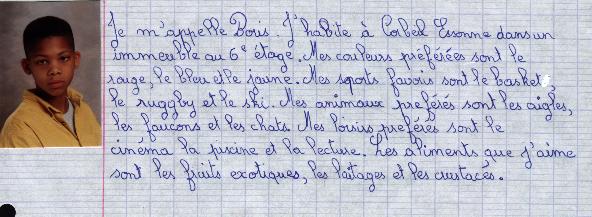 Je m'appelle Boris. J'habite à Corbel Essonne dans un
immeuble au 6e étage. Mes couleurs préférées sont le
rouge, le bleu et le jaune. Mes sports favoris sont le basket,
le ruggby et le ski. Mes animaux preférés sont les aigles,
les faucons et les chats. Mes loisirs preférés sont le
cinéma la piscine et la lecture. Les aliments que j'aime
sont les fruits exotiques, les laitages et les crustacés.